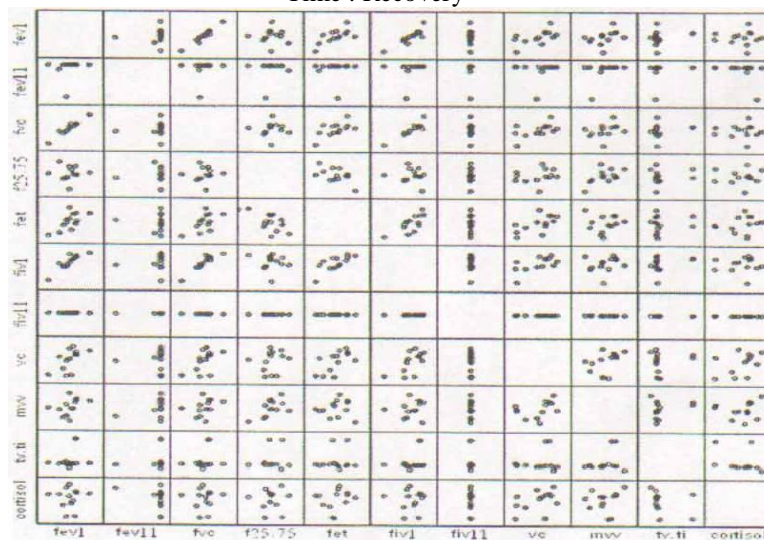 Time : Recovery
fev1
fev11
fvc
f25.75
fet
fiv1
fiv11
vc
mvv
tv.ti
cortisol
fev1 fev11 fvc f25.75 fet fiv1 fiv11 vc mvv tv.ti cortisol